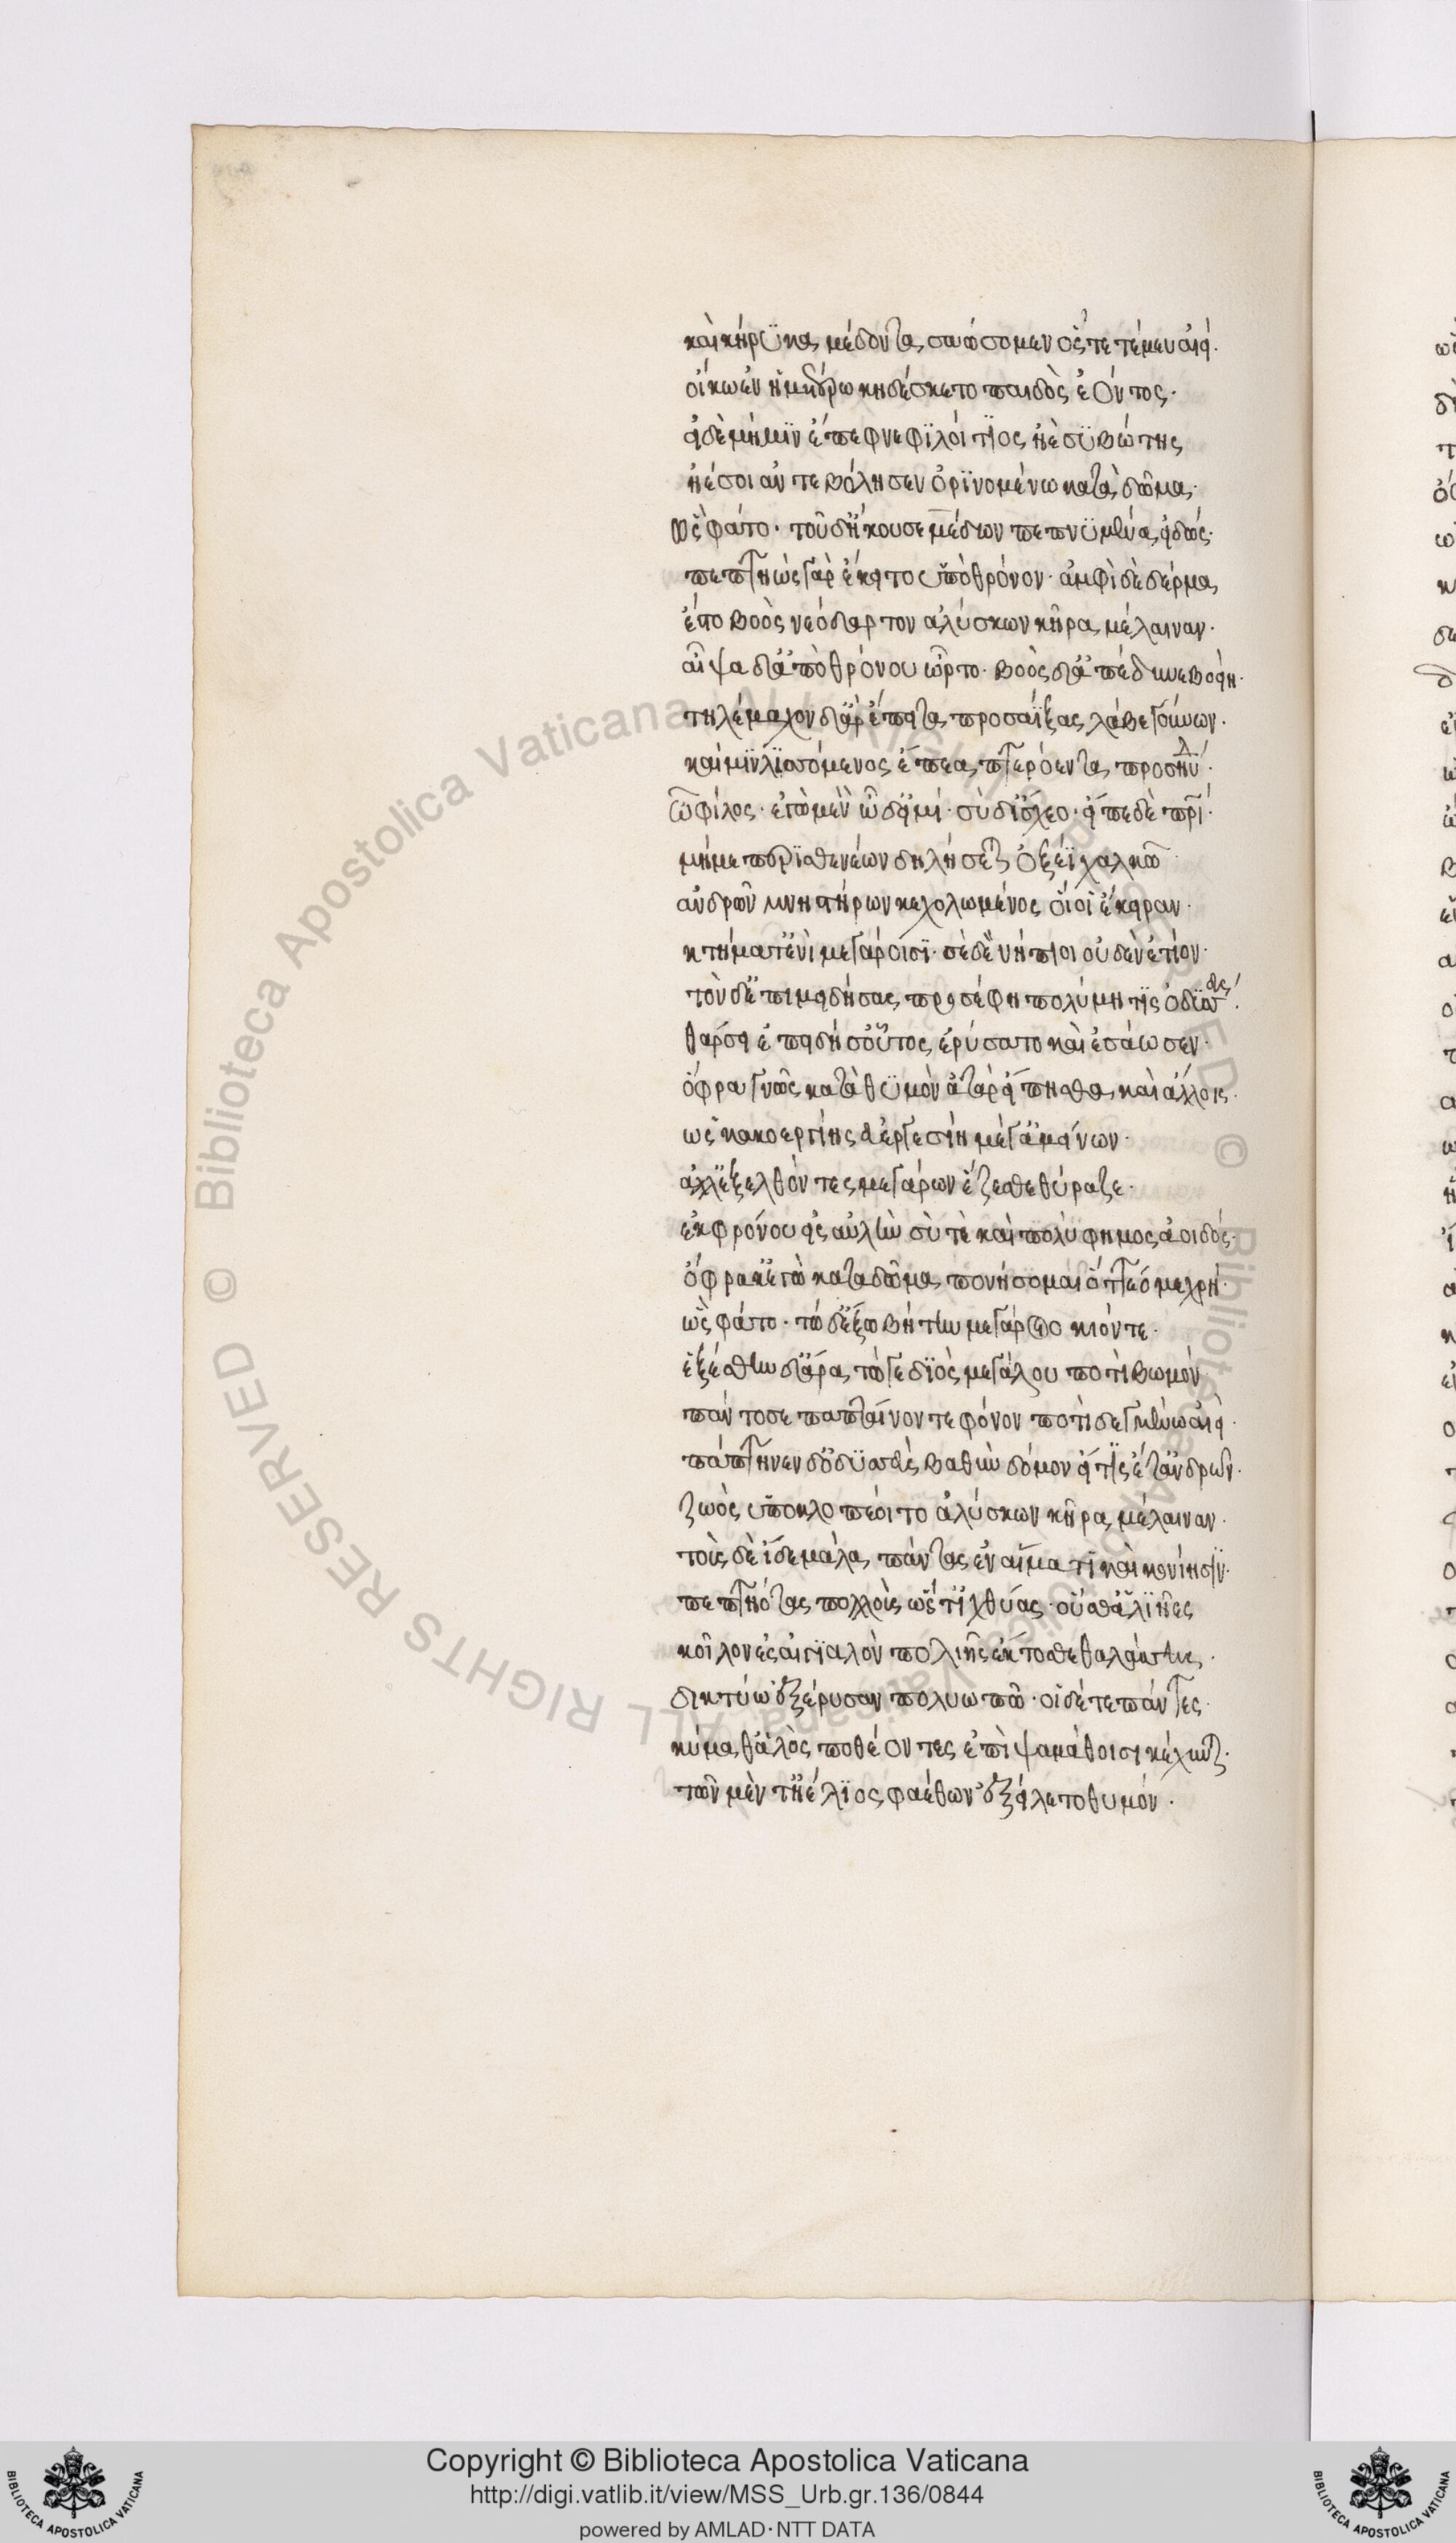 καὶ κήρϋκα μέδοντα σαώσομεν ὅς τέ μευ αἰεί·
οἴκω ἐν ἡμετέρω κηδέσκετο παιδὸς ἐόντος·
εἰ δὲ μή μϊν ἔπεφνε φϊλοίτϊος ἠὲ συβώτης
ἠέ σοι ἀντεβόλησεν ὀρϊνομένω κατὰ δῶμα·
ὣς φάτο· τοῦ δ' ἤκουσε μέδων πεπνϋμένα εἰδώς·
πεπτηὼς γὰρ ἔκειτο ὑπὸ θρόνον· ἀμφὶ δὲ δέρμα
ἕστο βοὸς νεόδαρτον ἀλύσκων κῆρα μέλαιναν·
αἶψα δ' ἀπὸ θρόνου ὦρτο· βοὸς δ' ἀπέδυνε βοείην·
τηλέμαχον δ' ἄρ' ἔπειτα προσαΐξας λάβε γούνων·
καί μϊν λϊσσόμενος ἔπεα πτερόεντα προσηύ·
ὦ φίλος· ἐγὼ μὲν ὅδ' εἰμί· σὺ δ' ἴσχεο· εἰπὲ δὲ πρί·
μή με περϊσθενέων δηλήσεται ὀξέϊ χαλκῶ
ἀνδρῶν μνηστήρων κεχολωμένος οἵ οἱ ἔκειραν·
κτήματ' ἐνὶ μεγάροισϊ· σὲ δὲ νήπιοι οὐδὲν ἔτιον·
τὸν δ' ἐπιμειδήσας προσέφη πολύμητϊς ὀδϊσσεύς·
θάρσει ἐπειδή σ' οὗτος ἐρύσατο καὶ ἐσάωσεν·
ὄφρα γνῶς κατὰ θϋμὸν ἀτὰρ εἴπησθα καὶ ἄλλοις·
ὡς κακοεργίης εὐεργεσίη μέγ' ἀμείνων·
ἀλλ' ἐξελθόντες μεγάρων ἕζεσθε θύραζε·
ἐκ φρόνου εἰς αὐλὴν σύ τὲ καὶ πολύφημος ἀοιδός·
ὄφρα κ' ἐγὼ κατὰ δῶμα πονήσομαι ὅττεό με χρή·
ὣς φάτο· τὼ δ' ἔξω βήτην μεγάροιο κιόντε·
ἑζέσθην δ' ἄρα τώ γε δϊὸς μεγάλου ποτὶ βωμόν
πάντοσε παπταίνοντε φόνον ποτιδεγμένω αἰεὶ·
πάπτηνεν δ' ὀδϋσεὺς καθ' ἑὸν δόμον εἴ τϊς ἔτ' ἀνδρῶν·
ζωὸς ὑποκλοπέοιτο ἀλύσκων κῆρα μέλαιναν·
τοὺς δὲ ἴδε μάλα πάντας ἐν αἵματϊ καὶ κονίησϊν·
πεπτηότας πολλοὺς ὥς τ' ἰχθύας· οὕς θ' ἁλϊῆες
κοῖλον ἐς αἰγϊαλὸν πολιῆς ἔκτοσθε θαλάσσης·
δικτύω ἐξέρυσαν πολυωπῶ· οἱ δέ τε πάντες·
κύμαθ' ἁλὸς ποθέοντες ἐπὶ ψαμάθοισι κέχυνται·
τῶν μὲν τ' ἠέλϊος φαέθων ἐξείλετο θυμόν·
Copyright © Biblioteca Apostolica Vaticana
http://digi.vatlib.it/view/MSS_Urb.gr.136/0844
powered by AMLAD·NTT DATA